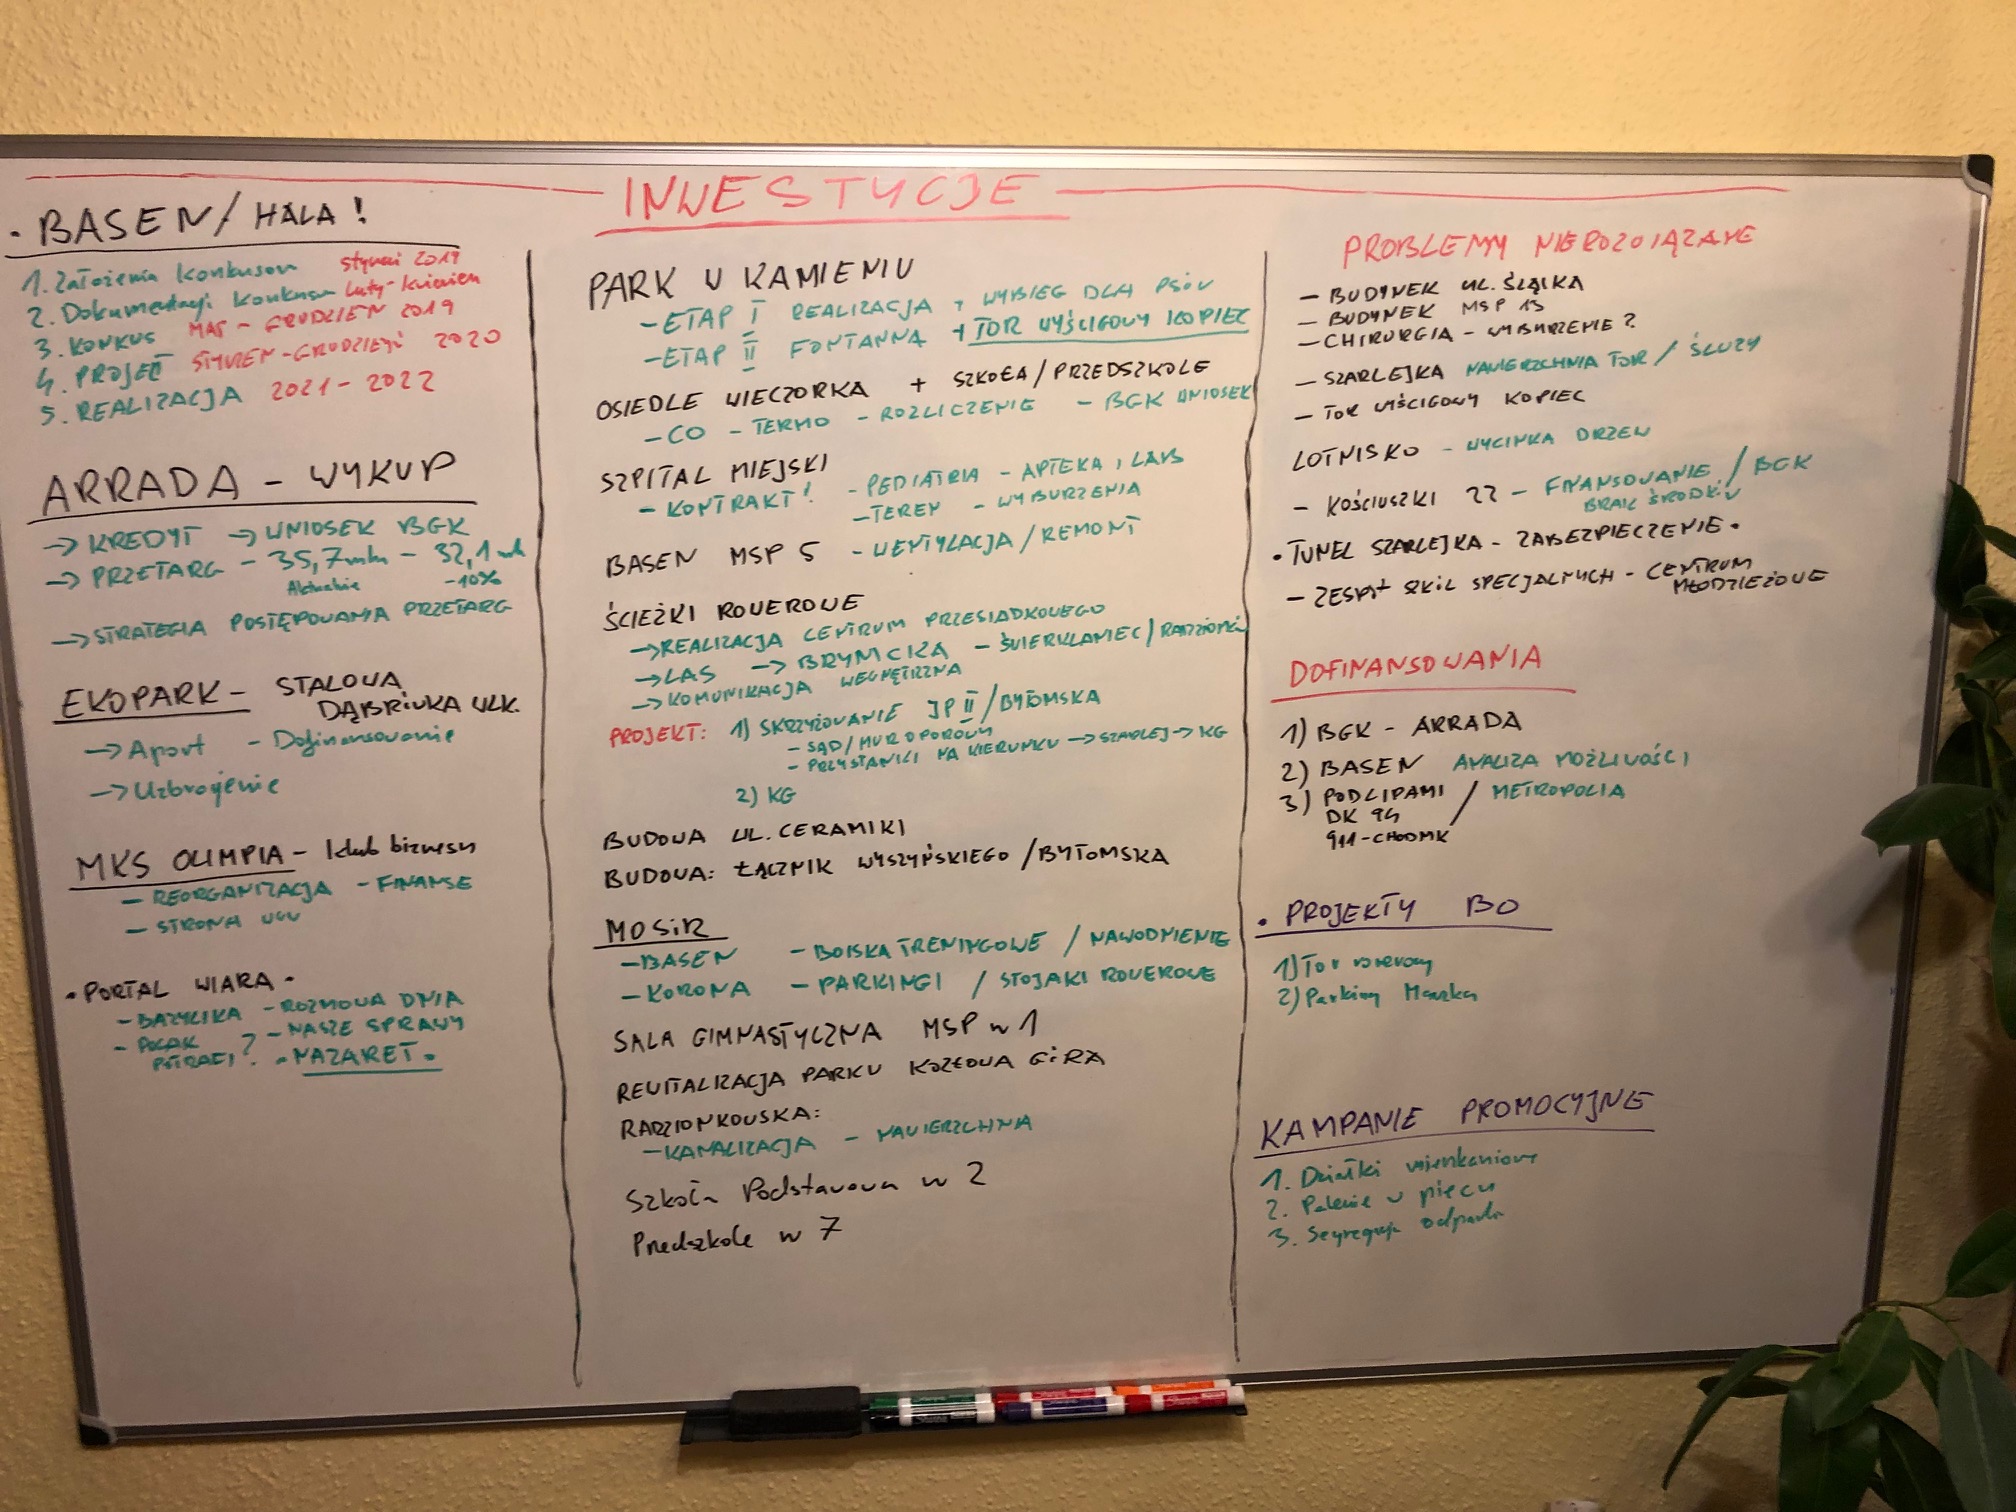 INWESTYCJE
• BASEN / HALA !
1. Założenia konkursu styczeń 2019
2. Dokumentacji konkursu luty - kwiecień
3. KONKURS MAJ - GRUDZIEŃ 2019
4. PROJEKT STYCZEŃ - GRUDZIEŃ 2020
5. REALIZACJA 2021 - 2022
ARRADA - WYKUP
→ KREDYT → WNIOSEK BGK
→ PRZETARG - 35,7 mln - 32,1 mln
Aktualnie -10%
→ STRATEGIA POSTĘPOWANIA PRZETARG
EKOPARK - STALOWA
DĄBRÓWKA WLK.
→ Aport - Dofinansowanie
→ Uzbrojenie
MKS OLIMPIA - klub biznesu
- REORGANIZACJA - FINANSE
- STRONA WWW
• PORTAL WIARA -
- BAZYLIKA - ROZMOWA DNIA
- POLAK ? - NASZE SPRAWY
POTRAFI? • NAZARET •
PARK W KAMIENIU
- ETAP I REALIZACJA + WYBIEG DLA PSÓW
- ETAP II FONTANNA + TOR WYŚCIGOWY KOPIEC
OSIEDLE WIECZORKA + SZKOŁA / PRZEDSZKOLE
- CO - TERMO - ROZLICZENIE - BGK WNIOSEK
SZPITAL MIEJSKI
- KONTRAKT! - PEDIATRIA - APTEKA, LAB
- TEREN - WYBURZENIA
BASEN MSP 5 - WENTYLACJA / REMONT
ŚCIEŻKI ROWEROWE
→ REALIZACJA CENTRUM PRZESIADKOWEGO
→ LAS → BRYNICKA - ŚWIERKLANIEC / RADZIONKÓW
→ KOMUNIKACJA WEWNĘTRZNA
PROJEKT: 1) SKRZYŻOWANIE JP II / BYTOMSKA
- SĄD / MUR OPOROWY
- PRZYSTANKI NA KIERUNKU → SZARLEJ → KG
2) KG
BUDOWA UL. CERAMIKI
BUDOWA: ŁĄCZNIK WYSZYŃSKIEGO / BYTOMSKA
MOSiR
- BASEN - BOISKA TRENINGOWE / NAWODNIENIE
- KORONA - PARKINGI / STOJAKI ROWEROWE
SALA GIMNASTYCZNA MSP nr 1
REWITALIZACJA PARKU KOZŁOWA GÓRA
RADZIONKOWSKA:
- KANALIZACJA - NAWIERZCHNIA
Szkoła Podstawowa nr 2
Przedszkole nr 7
PROBLEMY NIEROZWIĄZANE
- BUDYNEK UL. ŚLĄSKA
- BUDYNEK MSP 13
- CHIRURGIA - WYBURZENIE?
- SZARLEJKA NAWIERZCHNIA TOR / ŚLUZY
- TOR WYŚCIGOWY KOPIEC
LOTNISKO - WYCINKA DRZEW
- KOŚCIUSZKI 22 - FINANSOWANIE / BGK
BRAK ŚRODKÓW
• TUNEL SZARLEJKA - ZABEZPIECZENIE •
- ZESPÓŁ SZKÓŁ SPECJALNYCH - CENTRUM
MŁODZIEŻOWE
DOFINANSOWANIA
1) BGK - ARRADA
2) BASEN ANALIZA MOŻLIWOŚCI
3) PODLIPAMI / METROPOLIA
DK 94
911 - CHODNIK
• PROJEKTY BO
1) Tor rowerowy
2) Parking
KAMPANIE PROMOCYJNE
1. Działki mieszkaniowe
2. Palenie w piecu
3. Segregacja odpadów